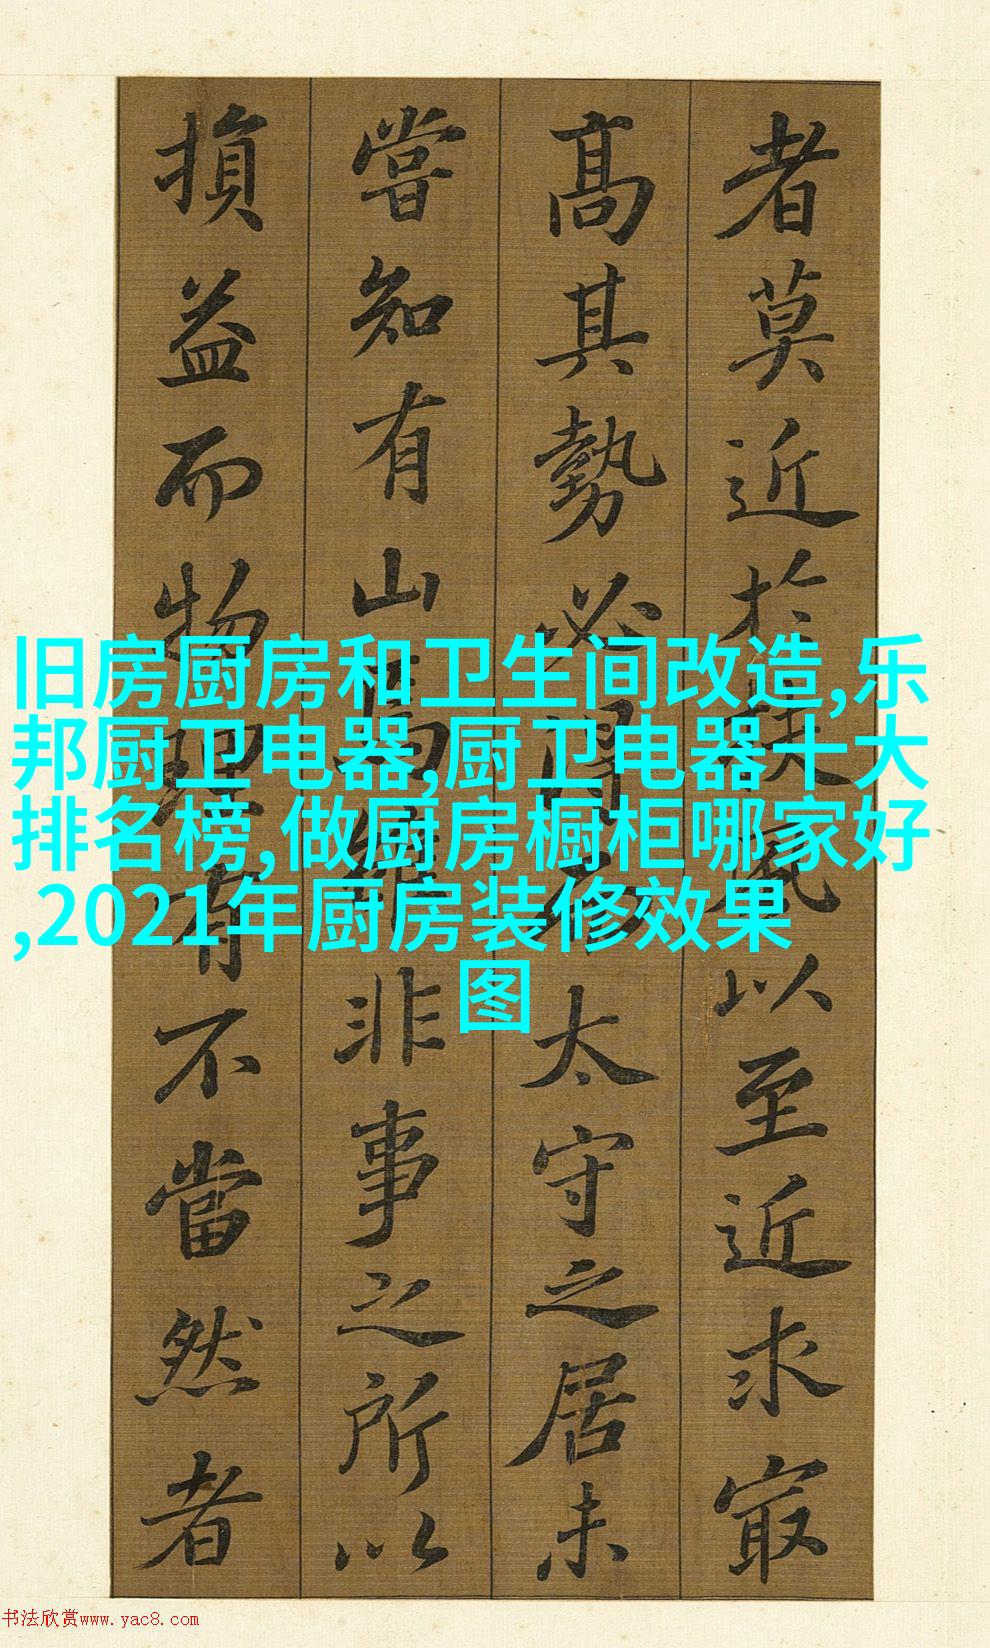 者莫近於扶風以至近求㝡
髙其勢必得而太守之居未
嘗知有山焉雖非事之所以
損益而物理有不當然者
旧房厨房和卫生间改造,乐
邦厨卫电器,厨卫电器十大
排名榜,做厨房橱柜哪家好
,2021年厨房装修效果
图
书法欣赏www.yac8.com